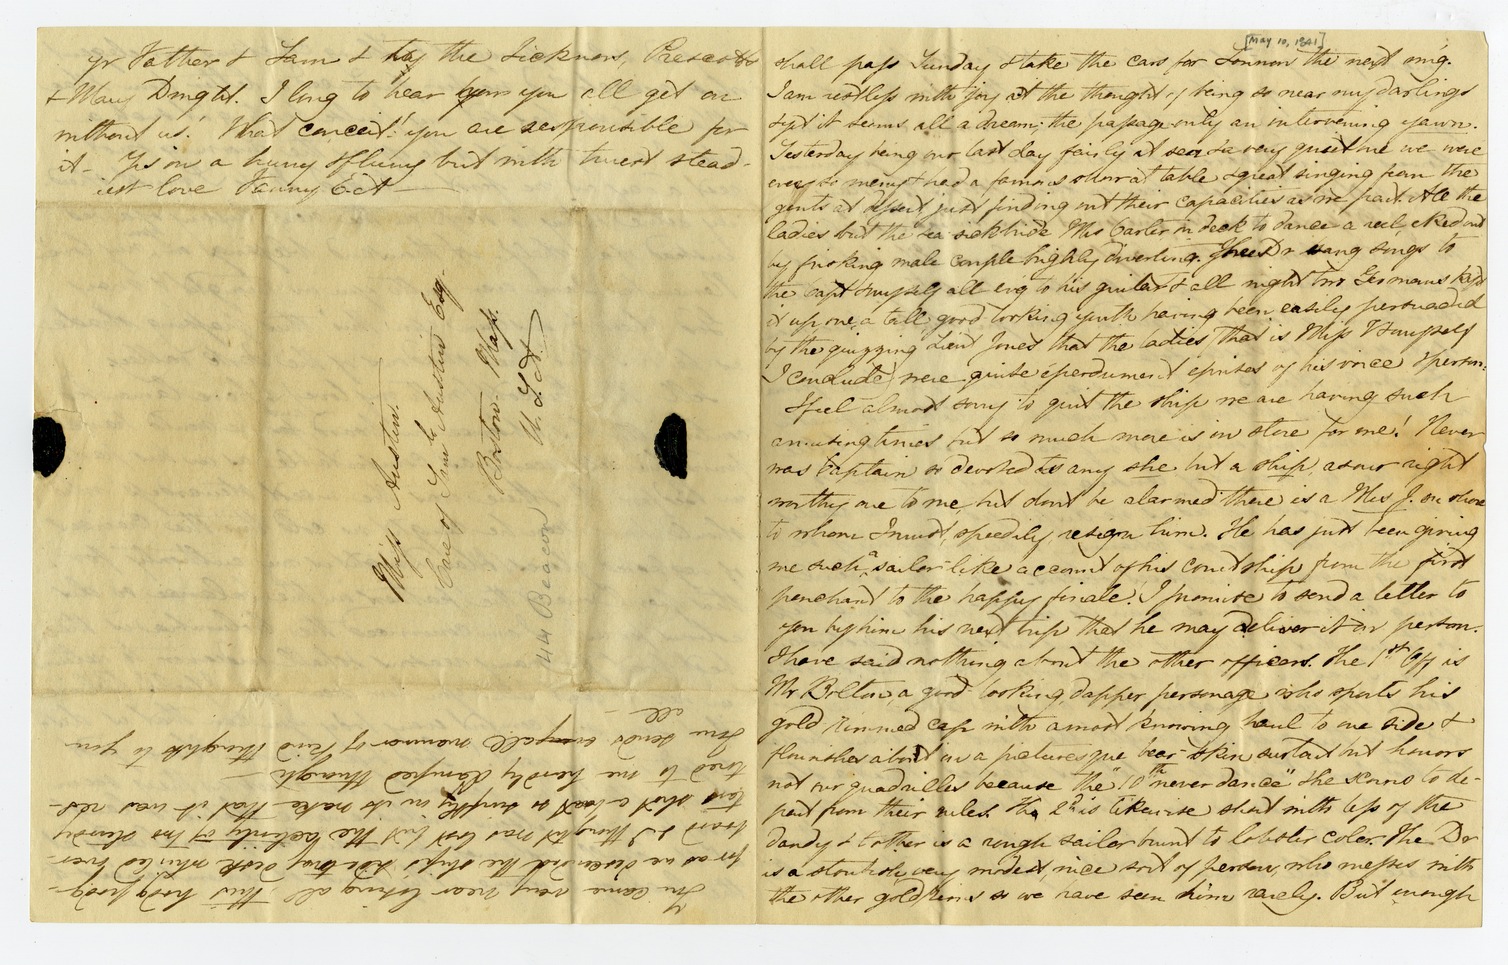 [May 10, 1841]
shall pass Sunday & take the cars for London the next m'g.
I am restless with joy at the thought of being so near my darlings
& yet it seems all a dream; the passage only an intervening yawn.
Yesterday being our last day fairly at sea & a very quiet one we were
ever so merry & had a famous dinner at table & great singing from the
gents at desert just finding out their capacities as we part. All the
ladies but the sea sick bride Mrs Carter on deck to dance a reel, eked out
by frisking male couple highly diverting. The Dr sang songs to
the Capt & myself all ev'g to his guitar & all night two Germans kept
it up one, a tall, good looking youth having been easily persuaded
by the quizzing Lieut Jones that the ladies that is Miss & myself
I conclude, were quite éperdument éprises of his voice & person.
I feel almost sorry to quit the ship we are having such
amusing times but so much more is in store for me! Never
was Captain so devoted to any she but a ship, as our right
worthy one to me, but dont be alarmed there is a Mrs J. on shore
to whom I must, speedily, resign him. He has just been giving
me such a sailor-like account of his courtship from the first
penchant to the happy finale! I promise to send a letter to
you by him his next trip that he may deliver it in person.
I have said nothing about the other officers. The 1st Off is
Mr Bolton, a good looking, dapper personage who sports his
gold rimmed cap with a most knowing haul to one side &
flourishes about in a picturesque bear-skin surtout but honors
not our quadrilles because the "10th never dance" & he scorns to de-
part from their rules. The 2d is likewise stout with less of the
dandy & t'other is a rough sailor burnt to lobster color. The Dr
is a very modest, nice sort of person, who messes with
the other gold rims so we have seen him rarely. But enough
yr Father & Sam & the Ticknors, Prescotts
& Mary Dwight. I long to hear how you all get on
without us! What conceit! you are responsible for
it - Yrs in a hurry & flurry but with truest stead-
iest love Fanny E A
Miss Austin.
Care of Austin Esq.
Boston. Mass.
U. S. A.
44 Beacon
You came very near losing all this hodg podg-
for as we descend the ship's side my desk whirled over-
board & I thought was lost but the of two sturdy
tars shot a boat so swiftly in its wake that it was res-
tored to me hardly damped through -
Tom sends all manner of kind thoughts to you
all -